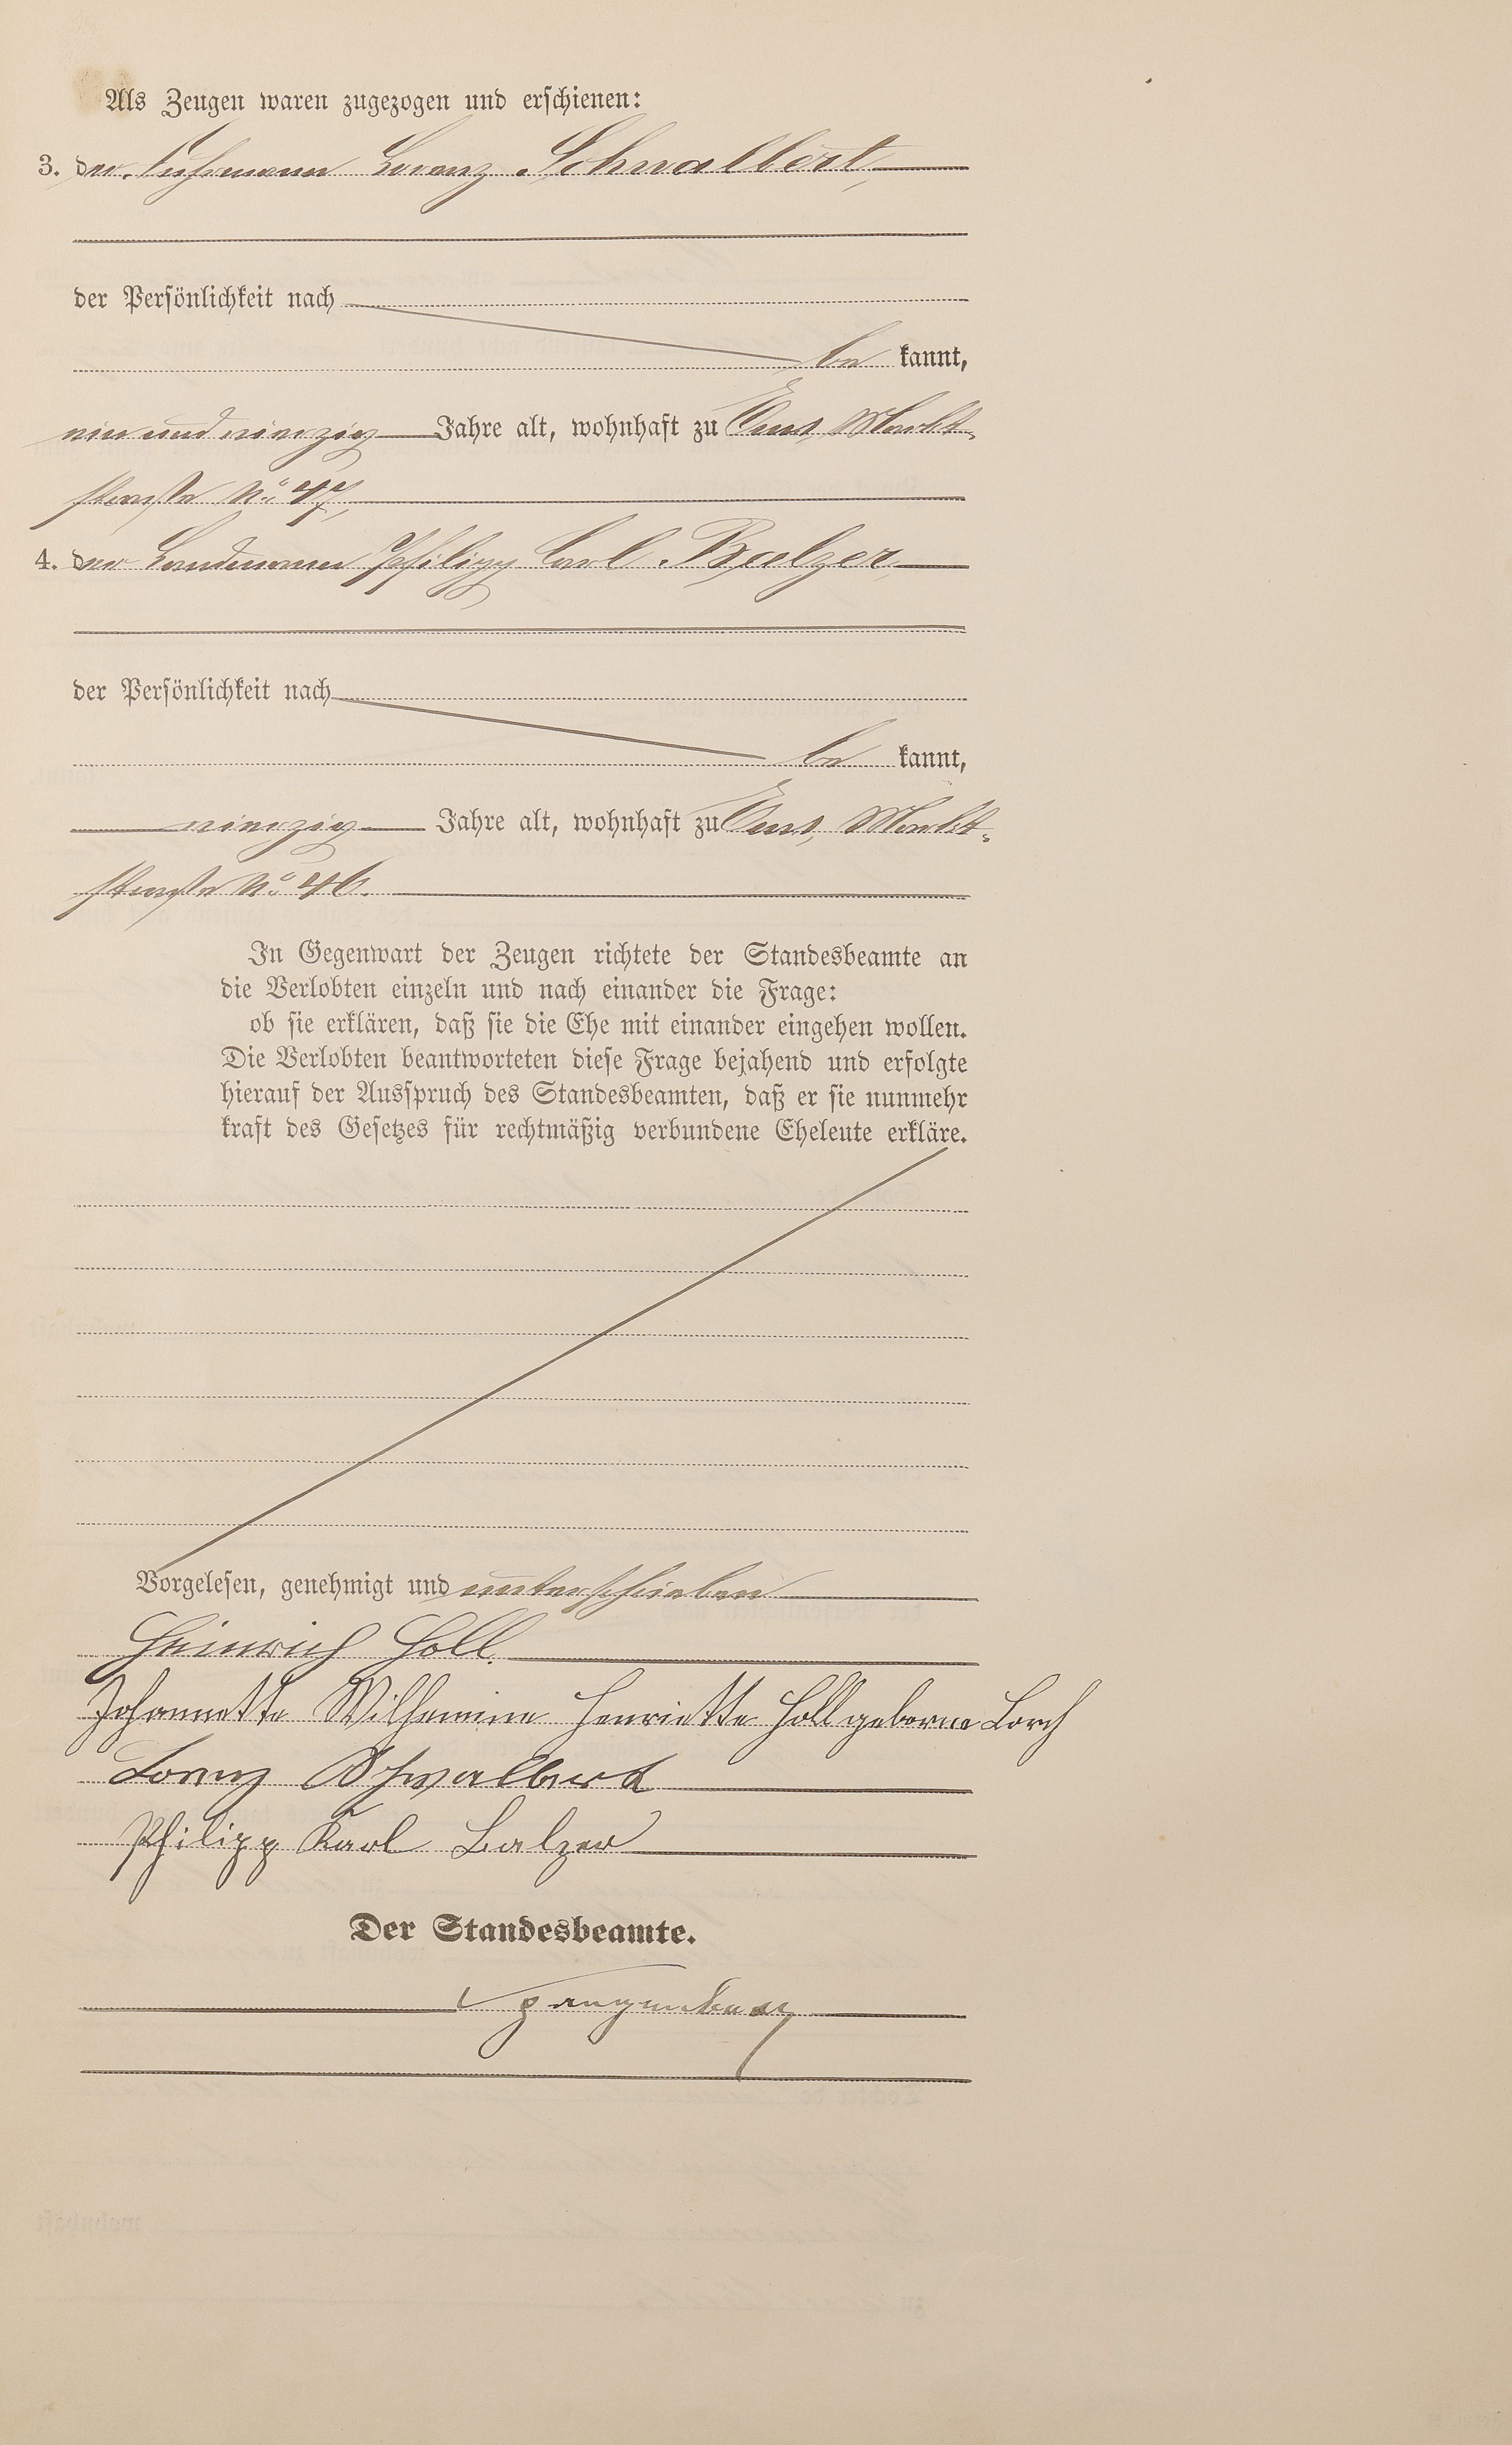 Als Zeugen waren zugezogen und erschienen:
3. der Fuhrmann Lorenz Schwalbert,
der Persönlichkeit nach
be kannt,
ein und vierzig Jahre alt, wohnhaft zu Ems, Markt-
straße No 47,
4. der Landmann Philipp Carl Balzer,
der Persönlichkeit nach
be kannt,
vierzig Jahre alt, wohnhaft zu Ems, Markt-
straße No 46.
In Gegenwart der Zeugen richtete der Standesbeamte an
die Verlobten einzeln und nach einander die Frage:
ob sie erklären, daß sie die Ehe mit einander eingehen wollen.
Die Verlobten beantworteten diese Frage bejahend und erfolgte
hierauf der Ausspruch des Standesbeamten, daß er sie nunmehr
kraft des Gesetzes für rechtmäßig verbundene Eheleute erkläre.
Vorgelesen, genehmigt und unterschrieben
Heinrich Holl.
Johannette Wilhemine Henriette Holl geborne Lorch
Lorenz Schwalbert
Philipp Karl Balzer
Der Standesbeamte.